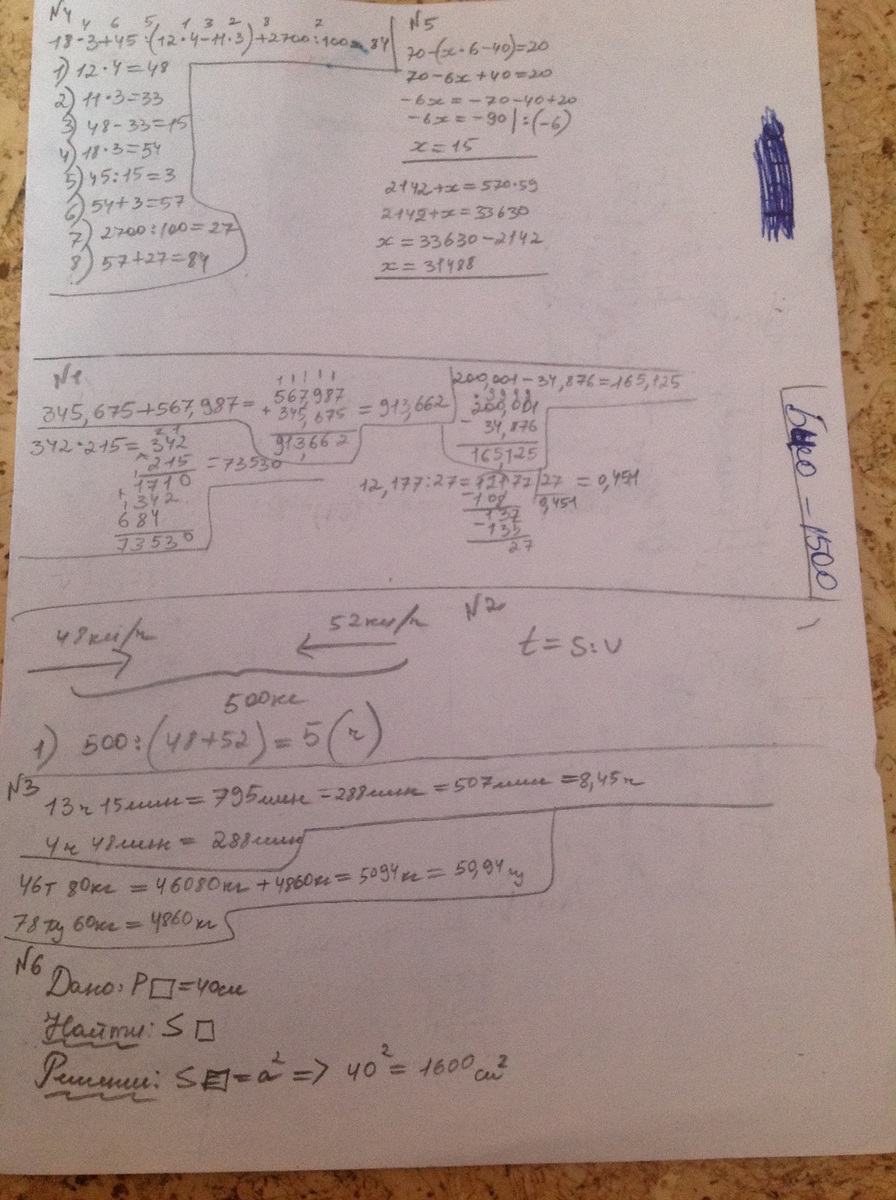 №4
4 6 5 1 3 2 8 7
18·3+45:(12·4-11·3)+2700:100=84
1) 12·4=48
2) 11·3=33
3) 48-33=15
4) 18·3=54
5) 45:15=3
6) 54+3=57
7) 2700:100=27
8) 57+27=84
№5
70-(x·6-40)=20
70-6x+40=20
-6x=-70-40+20
-6x=-90|:(-6)
x=15
2142+x=570·59
2142+x=33630
x=33630-2142
x=31488
№1
345,675+567,987=
567,987
+345,675
913,662
=913,662
200,001-34,876=165,125
200,001
-34,876
165,125
342·215=
342
×215
1710
+342
684
73530
=73530
12,177:27=
12177|27
-108
0,451
137
-135
27
=0,451
№2
48км/ч
52км/ч
t=S:v
500кг
1) 500:(48+52)=5(ч)
№3
13ч 15мин=795мин-288мин=507мин=8,45ч
4ч 48мин=288мин
46т 80кг=46080кг+4860кг=5094кг=50,94ц
78ц 60кг=4860кг
№6
Дано: P□=40см
Найти: S□
Решении: S□=a²=>40²=1600см²
-1500